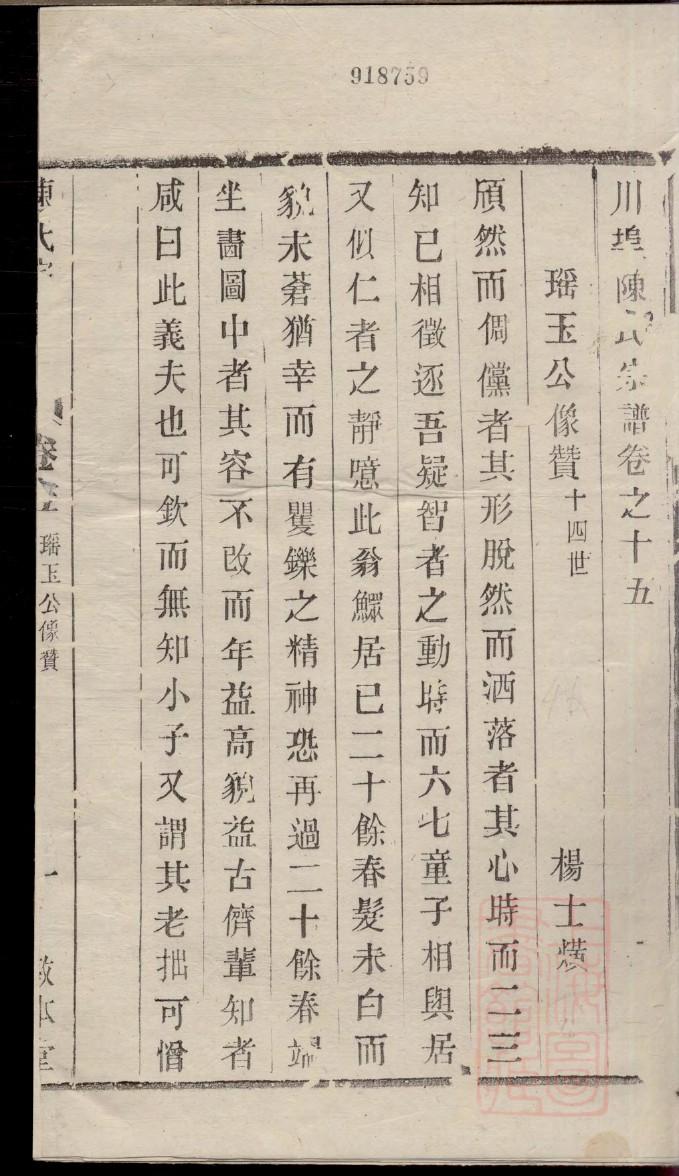 918759
川埠陳氏宗譜卷之十五
瑶玉公像贊十四世
楊士熿
頎然而倜儻者其形脫然而洒落者其心時而二三
知已相徵逐吾疑智者之動時而六七童子相與居
又似仁者之靜噫此翁鰥居已二十餘春髮未白而
貌未蒼猶幸而有矍鑠之精神恐再過二十餘春端
坐畵圖中者其容不改而年益高貌益古儕輩知者
咸曰此義夫也可欽而無知小子又謂其老拙可憎
陳氏宗
卷
瑶玉公像贊
一
敦本堂